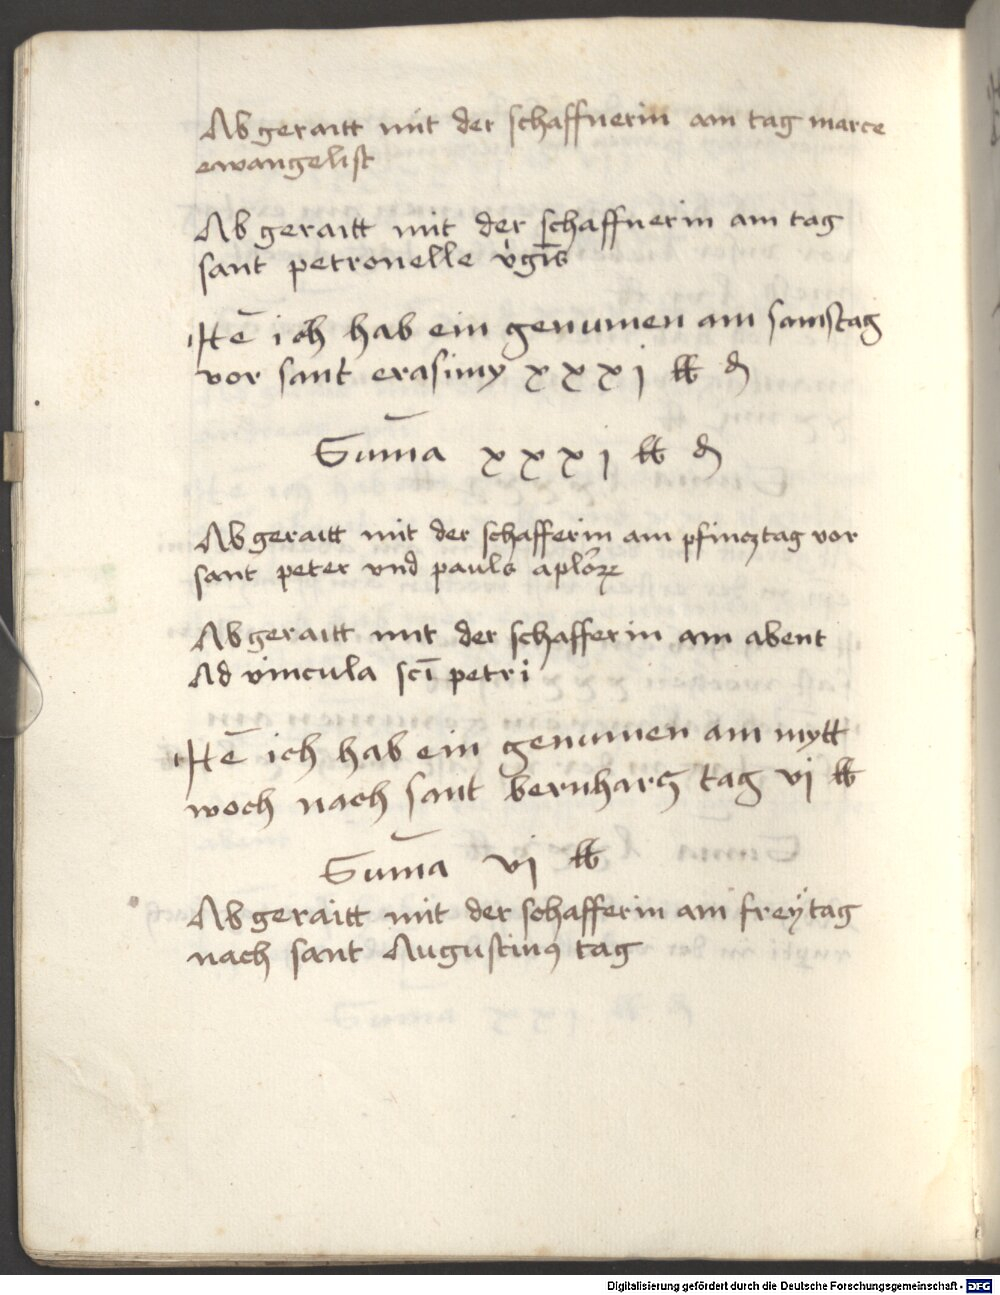 Abgeraitt mit der schaffnerin am tag marce
ewangelist
Ab geraitt mit der schaffnerin am tag
sant petronelle v̓gīs
Itē ich hab ein genumen am samstag
vor sant erasimy xxxj ℔ ₰
Sum̄a xxxj ℔ ₰
Abgeraitt mit der schafferin am pfincztag vor
sant peter vnd pauls aplōꝝ
Abgeraitt mit der schafferin am abent
Ad vincula scī petri
Itē ich hab ein genumen am mytt
woch nach sant bernharcz tag vj ℔
Sum̄a vj ℔
Abgeraitt mit der schafferin am freÿtag
nach sant Augustinꝰ tag
Digitalisierung gefördert durch die Deutsche Forschungsgemeinschaft - DFG